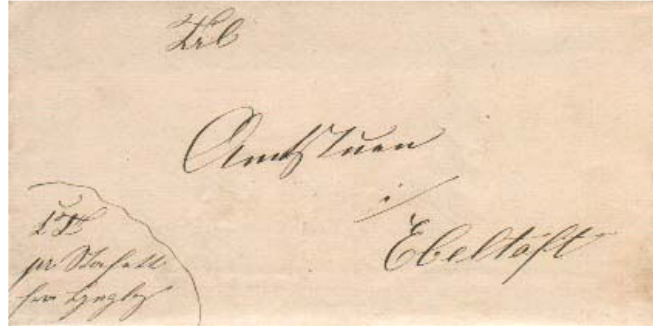 Til
Amtstuen
i/
Ebeltoft
K. T.
pr Stafett
fra Lyngby